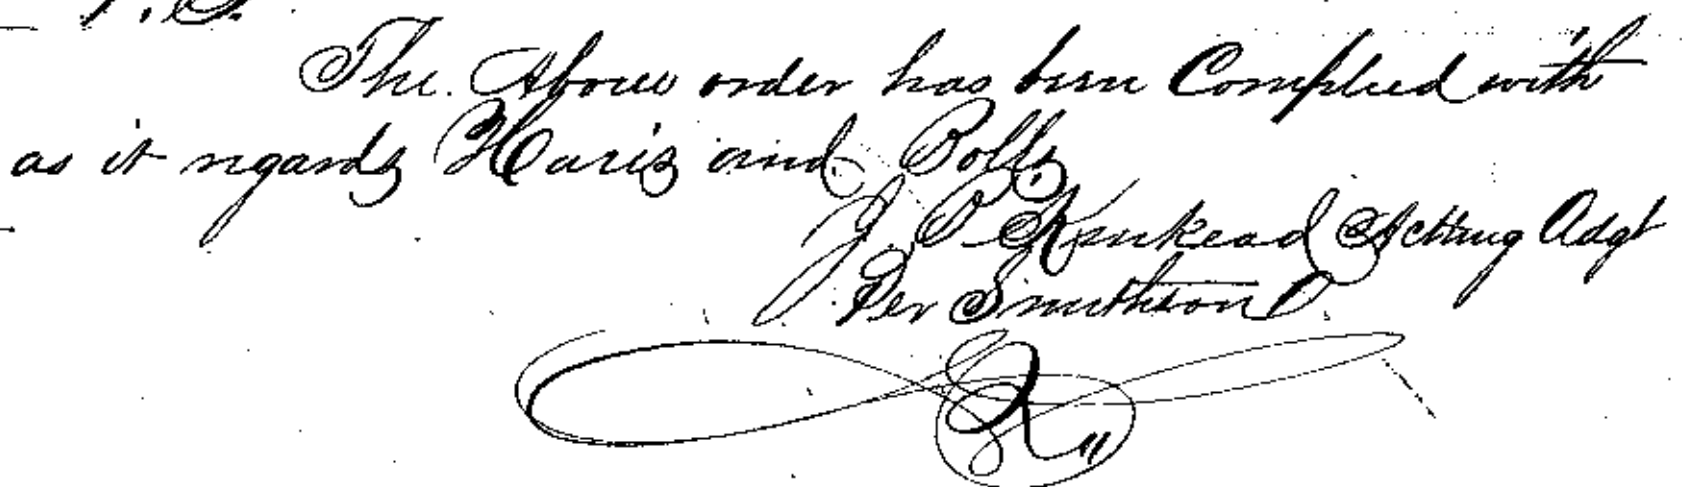 P.S.
The Above order has been Complied with
as it regards Haris and Bolls
J. P. Kinkead Acting Adgt
Per Smithson D.